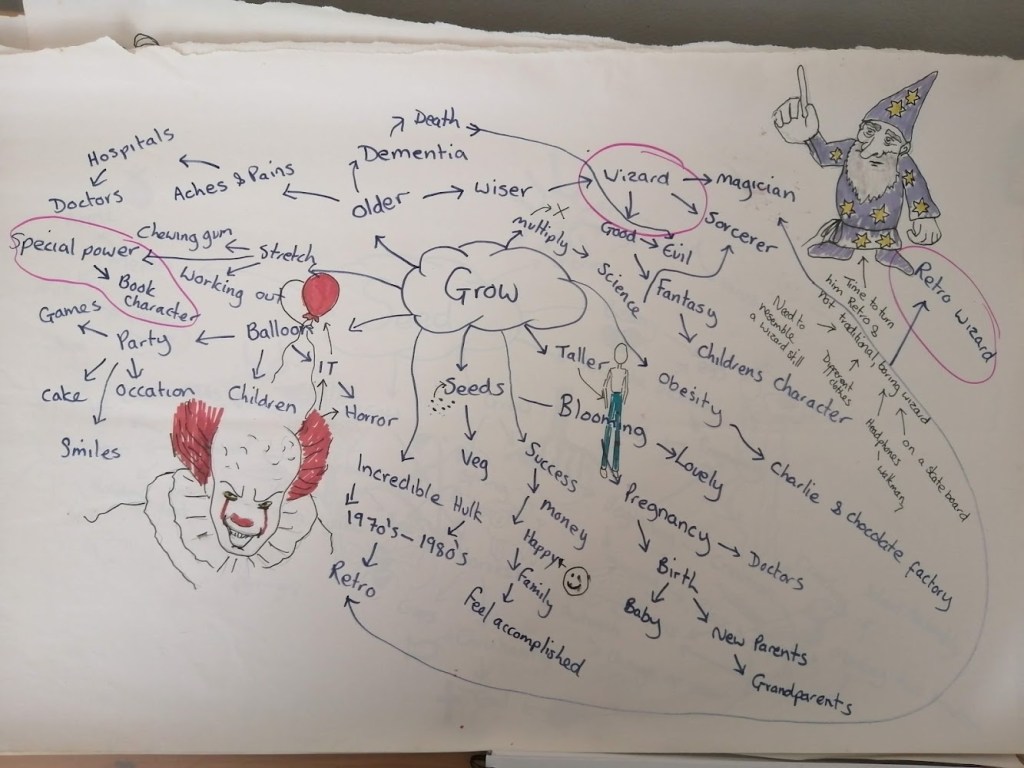 Death
Hospitals
Dementia
Aches & Pains
Doctors
Older
Wiser
Wizard
Magician
Sorcerer
Good
Evil
multiply
X
Chewing gum
Special power
Stretch
Working out
Book
character
Grow
Science
Fantasy
Childrens character
Retro wizard
Time to turn
him Retro &
not traditional boring wizard
Need to
resemble
a wizard still
Different
clothes
Headphones
walkman
on a skate board
Games
Party
Balloon
IT
Cake
Occation
Children
Horror
Smiles
Seeds
Veg
Taller
Blooming
Lovely
Obesity
Charlie & chocolate factory
Success
Money
Happy
Family
Feel accomplished
Incredible Hulk
1970's - 1980's
Retro
Pregnancy
Doctors
Birth
Baby
New Parents
Grandparents